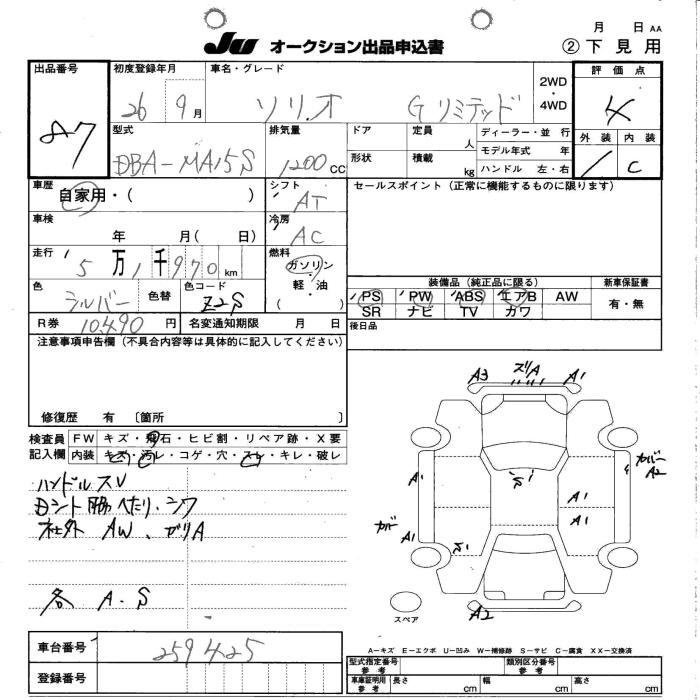 月 日 AA
JU オークション出品申込書 ② 下見用
出品番号 初度登録年月 車名・グレード 2WD・4WD 評価点
87 26 9月 ソリオ Gリミテッド 4
型式 排気量 ドア 定員 人 ディーラー・並行 外装 内装
DBA-MA15S 1200 CC 形状 積載 kg モデル年式 年 C
ハンドル 左・右
車歴 自家用・( ) シフト AT セールスポイント(正常に機能するものに限ります)
車検 年 月( 日) 冷房 AC
走行 5万1千970km 燃料 ガソリン・軽・油 ( )
色 シルバー 色替 色コード Z2S 装備品(純正品に限る) 新車保証書
PS PW ABS エアB AW 有・無
SR ナビ TV カワ
R券 10490円 名変通知期限 月 日 後日品
注意事項申告欄(不具合内容等は具体的に記入してください)
修復歴 有 〔箇所 〕
検査員記入欄 FW キズ・飛石・ヒビ割・リペア跡・X要
内装 キズ・汚レ・コゲ・穴・スレ・キレ・破レ
ハンドルスレ
社外 AW、ガリA
各 A.S
A3 ズリA A1
A1 S1 A1 カバーA2
カバーA1 A1
S1
A2
スペア
A-キズ E-エクボ U-凹み W-補修跡 S-サビ C-腐食 XX-交換済
車台番号 259425
登録番号
型式指定番号 参考 類別区分番号 参考
車庫証明用 参考 長さ cm 幅 cm 高さ cm